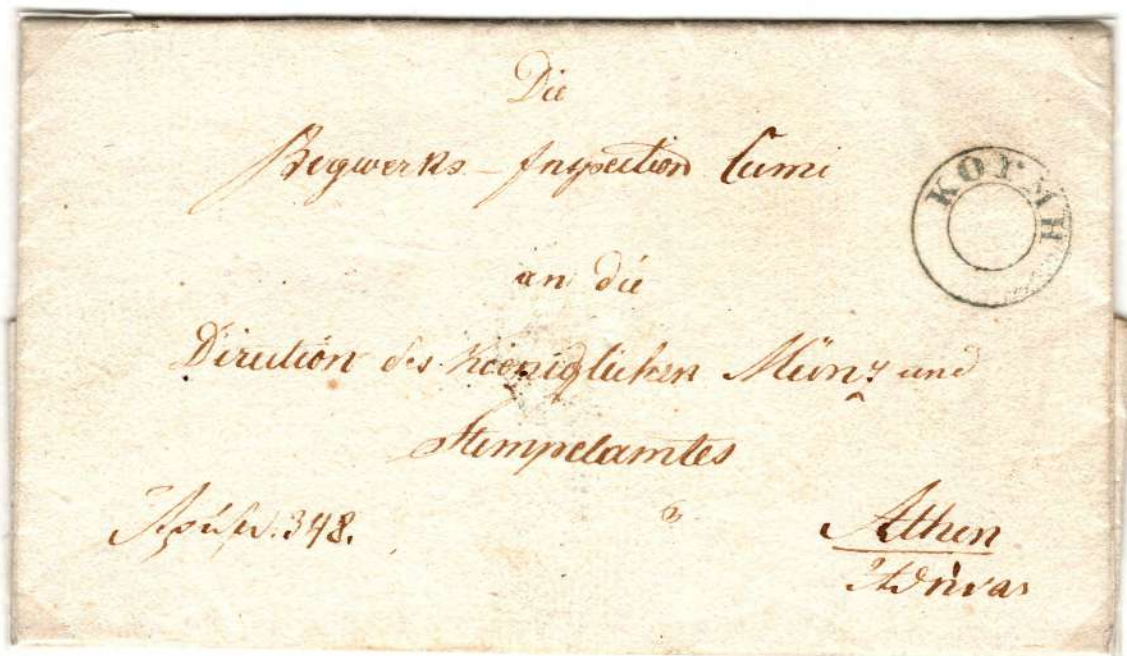 Die
Bergwerks-Inspection Cumi
ΚΟΥΜΗ
an die
Direction des Koeniglichen Münz und
Stempelamtes
Ἀριθ. 348.
Athen
Ἀθήνας